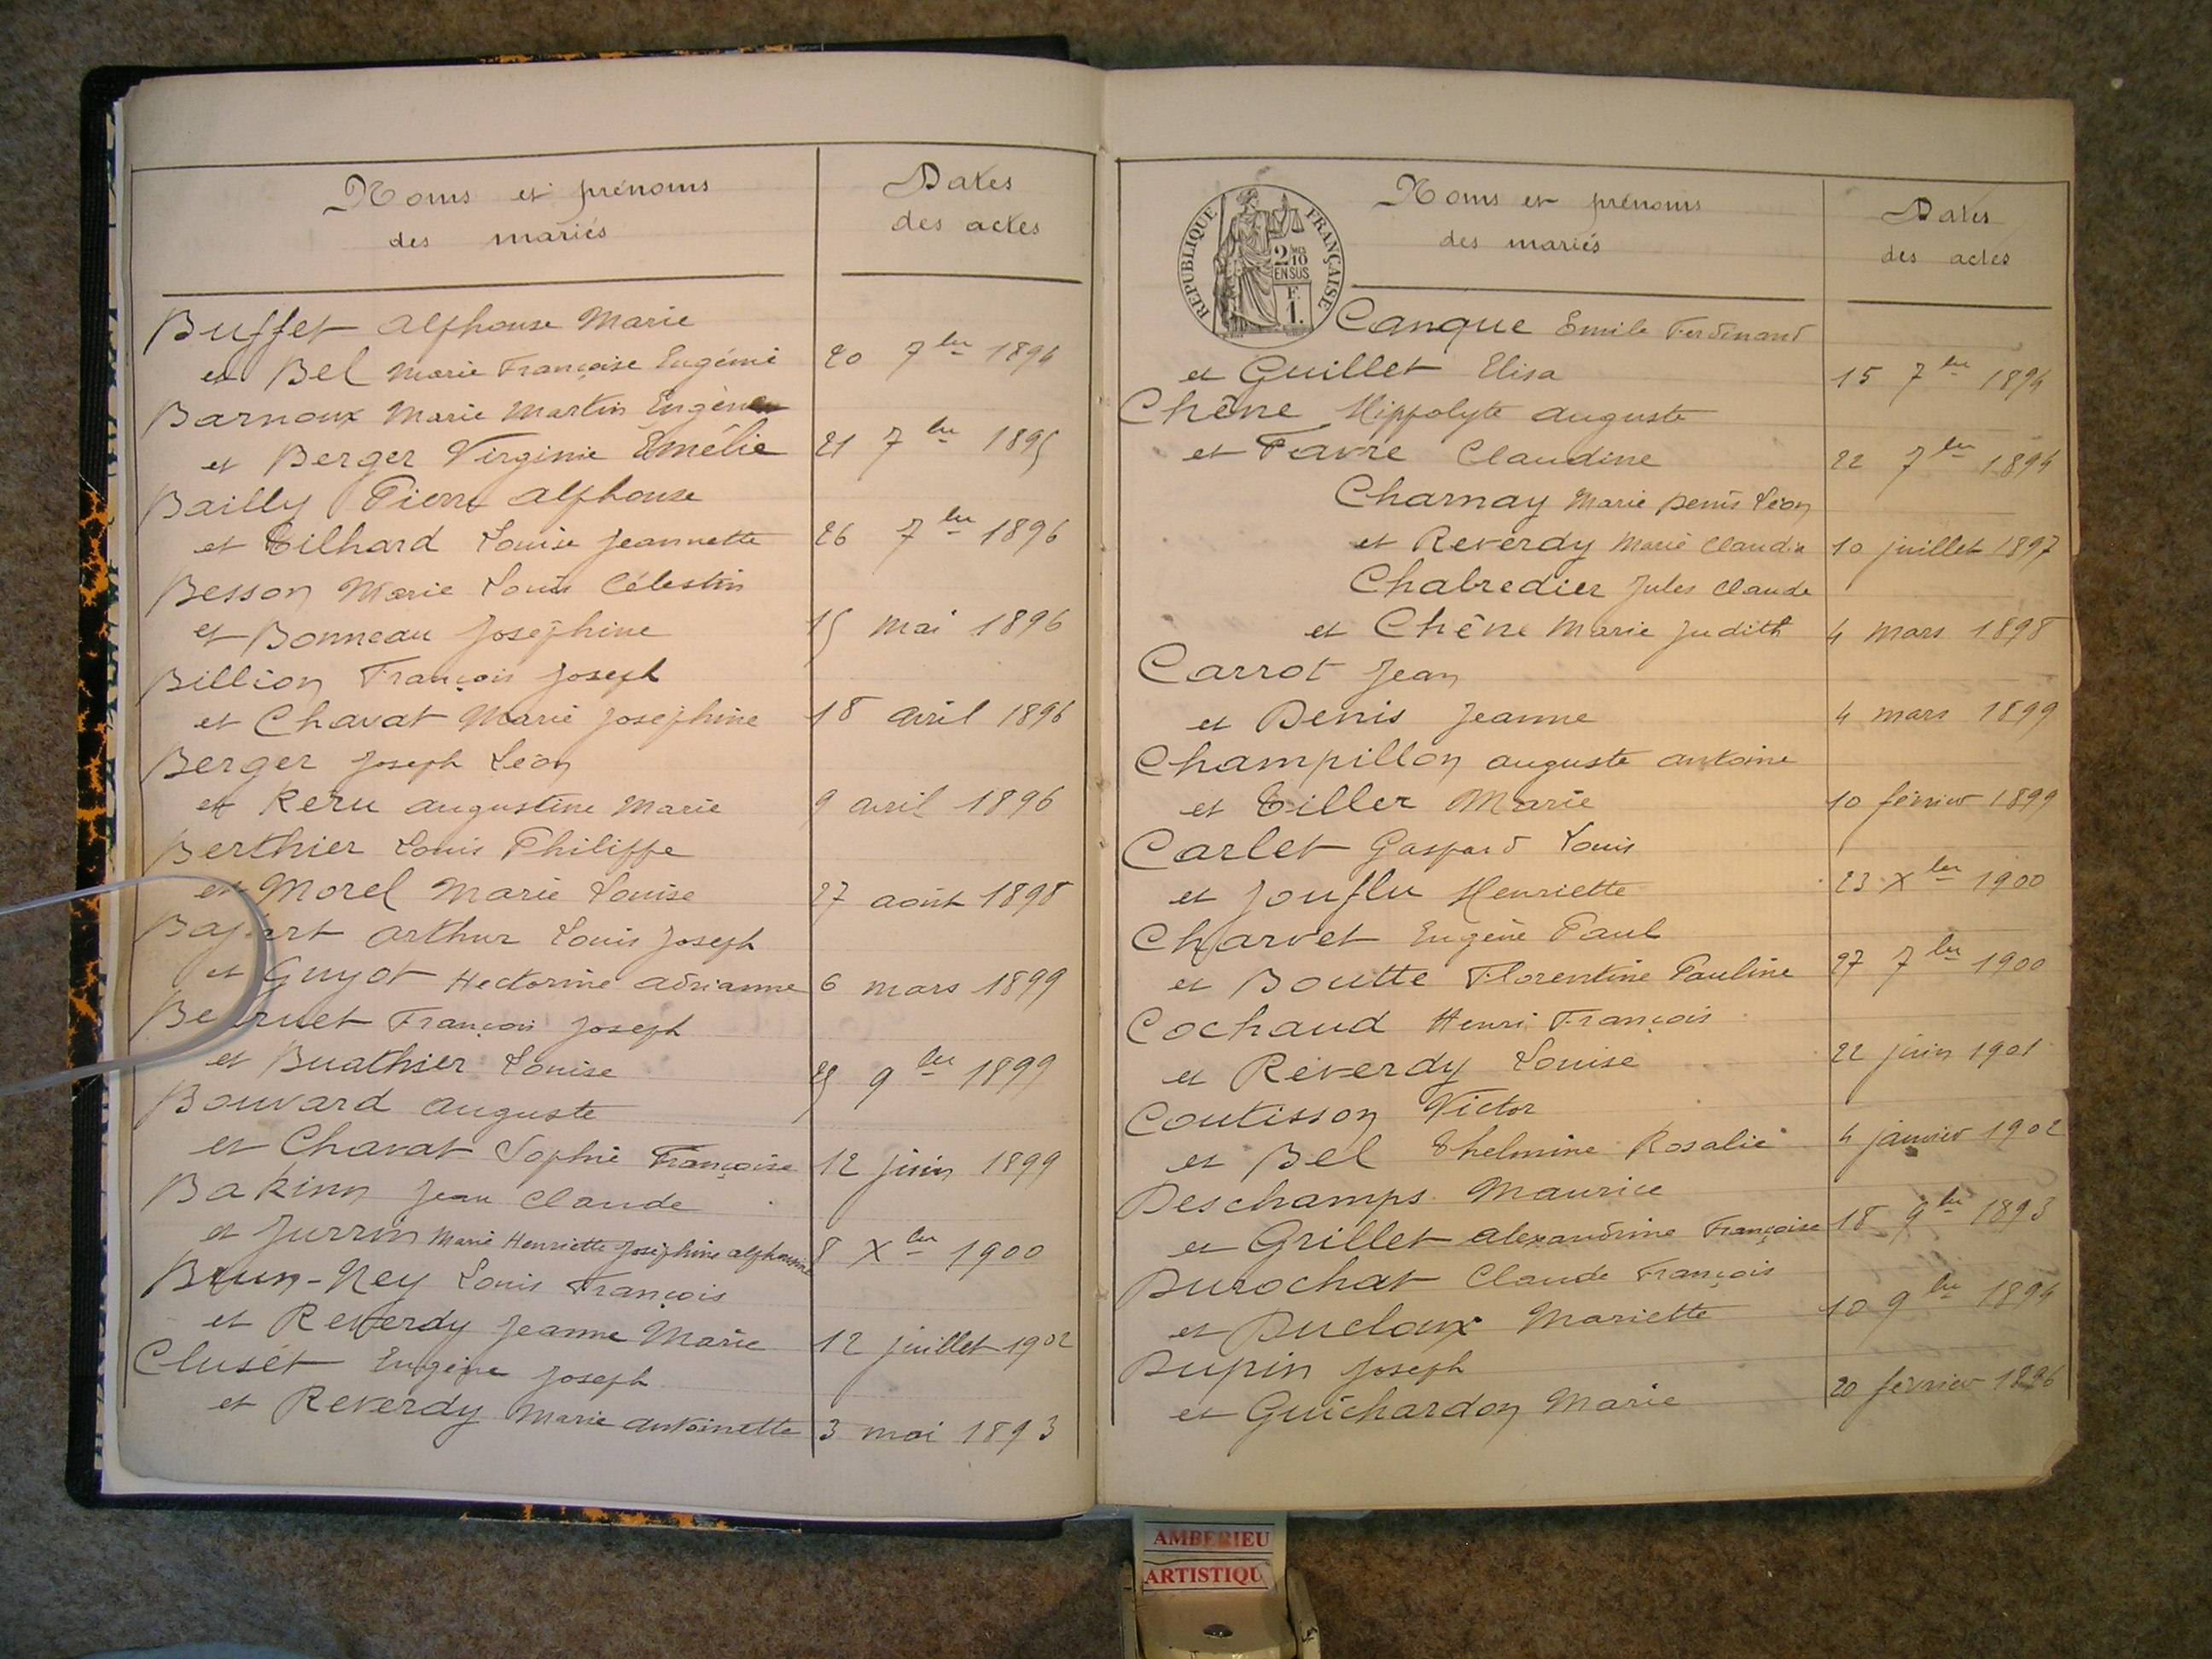 Noms et prénoms
des mariés
Dates
des actes
Buffet Alphonse Marie
et Bel Marie Françoise Eugénie 20 7bre 1894
Barnoux Marie Martin Eugène
et Berger Virginie Emélie 21 7bre 1895
Bailly Pierre Alphonse
et Tilhard Louise Jeannette 26 7bre 1896
Besson Marie Louis Célestin
et Bonneau Joséphine 15 mai 1896
Billion François Joseph
et Chavat Marie Joséphine 18 avril 1896
Berger Joseph Léon
et Keru Augustine Marie 9 avril 1896
Berthier Louis Philippe
et Morel Marie Louise 27 août 1898
Arthur Louis Joseph
et Guyot Hectorine Adrianne 6 mars 1899
François Joseph
et Buathier Louise 9bre 1899
Bouvard Auguste
et Chavat Sophie Françoise 12 juin 1899
Bakinn Jean Claude
et Jurrin Marie Henriette Joséphine Alphonsine 8 Xbre 1900
Brun-Ney Louis François
et Reverdy Jeanne Marie 12 juillet 1902
Cluset Eugène Joseph
et Reverdy Marie Antoinette 3 mai 1893
RÉPUBLIQUE FRANÇAISE
2/10 EN SUS
F. 1.
Noms et prénoms
des mariés
Dates
des actes
Canque Emile Ferdinand
et Guillet Elisa 15 7bre 1894
Chêne Hippolyte Auguste
et Favre Claudine 22 7bre 1894
Charnay Marie Denis Léon
et Reverdy Marie Claudia 10 juillet 1897
Chabredier Jules Claude
et Chêne Marie Judith 4 mars 1898
Carrot Jean
et Denis Jeanne 4 mars 1899
Champillon Auguste Antoine
et Tiller Marie 10 février 1899
Carlet Gaspard Louis
et Jouflu Henriette 23 Xbre 1900
Charvet Eugène Paul
et Boutte Florentine Pauline 27 7bre 1900
Cochaud Henri François
et Reverdy Louise 22 juin 1901
Coutisson Victor
et Bel Thelmine Rosalie 4 janvier 1902
Deschamps Maurice
et Grillet Alexandrine Françoise 18 9bre 1893
Durochat Claude François
et Ducloux Mariette 10 9bre 1894
Dupin Joseph
et Guichardon Marie 20 février 1896
AMBERIEU
ARTISTIQU